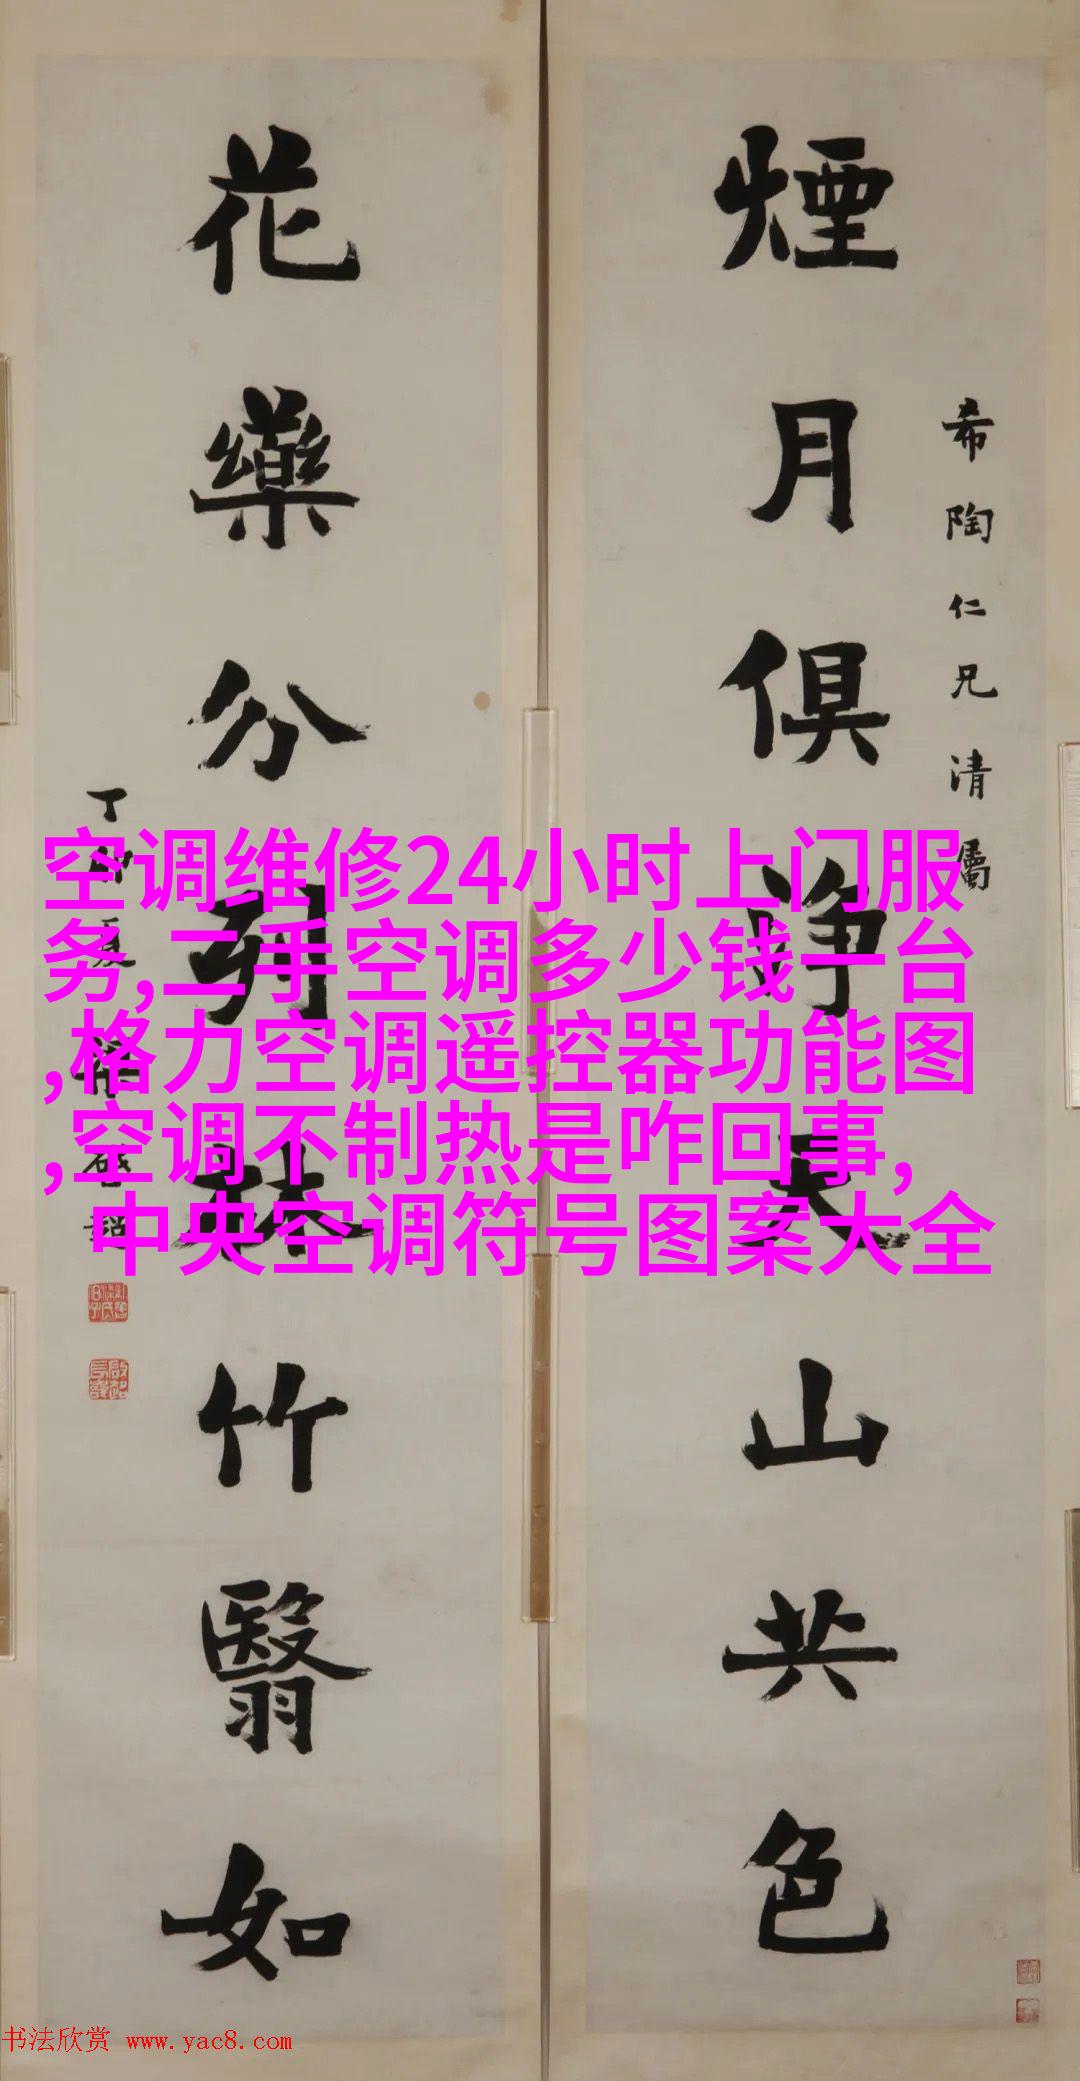 煙月俱淨天山共色
希陶仁兄清屬
花藥分列林竹翳如
丁卯夏梁啓超
空调维修24小时上门服
务,二手空调多少钱一台
,格力空调遥控器功能图
,空调不制热是咋回事,
中央空调符号图案大全
书法欣赏 www.yac8.com